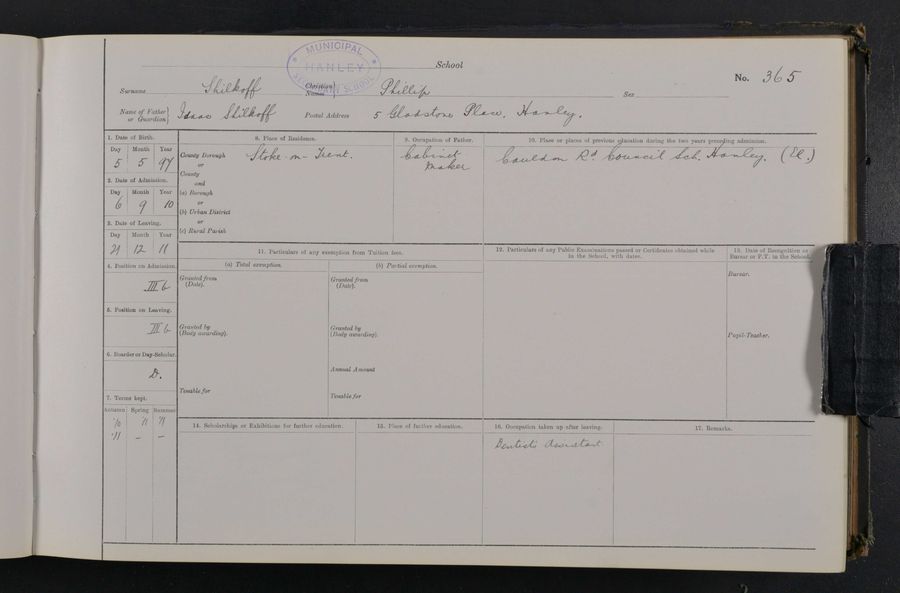 MUNICIPAL
HANLEY
SECONDARY SCHOOL
School
No. 365
Surname Shilkoff Christian Names Phillip Sex
Name of Father or Guardian} Isaac Shilkoff Postal Address 5 Gladstone Place, Hanley.
1. Date of Birth.
Day Month Year
5 5 97
2. Date of Admission.
Day Month Year
6 9 10
3. Date of Leaving.
Day Month Year
21 12 11
4. Position on Admission.
III b
5. Position on Leaving.
III b
6. Boarder or Day-Scholar.
D.
7. Terms kept.
Autumn Spring Summer
'10 '11 '11
'11 – –
8. Place of Residence.
County Borough Stoke-on-Trent.
or
County
and
(a) Borough
or
(b) Urban District
or
(c) Rural Parish
9. Occupation of Father.
Cabinet
maker
10. Place or places of previous education during the two years preceding admission.
Cauldon Rd Council Sch. Hanley. (El.)
11. Particulars of any exemption from Tuition fees.
(a) Total exemption.
Granted from
(Date).
Granted by
(Body awarding).
Tenable for
(b) Partial exemption.
Granted from
(Date).
Granted by
(Body awarding).
Annual Amount
Tenable for
12. Particulars of any Public Examinations passed or Certificates obtained while
in the School, with dates.
13. Date of Recognition as
Bursar or P.T. in the School.
Bursar.
Pupil-Teacher.
14. Scholarships or Exhibitions for further education.
15. Place of further education.
16. Occupation taken up after leaving.
Dentist's Assistant
17. Remarks.